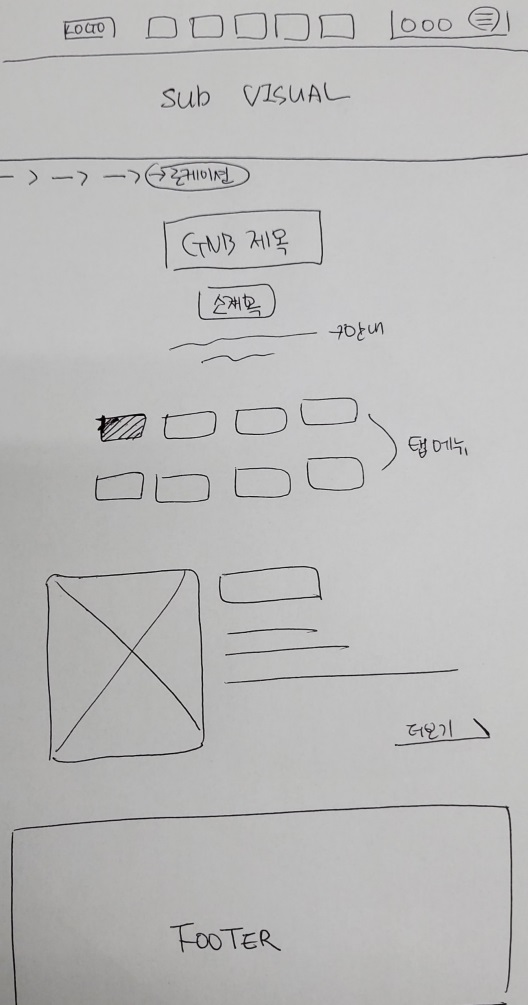 LOGO
SUB VISUAL
로케이션
GNB 제목
소제목
안내
탭 메뉴
더보기
FOOTER